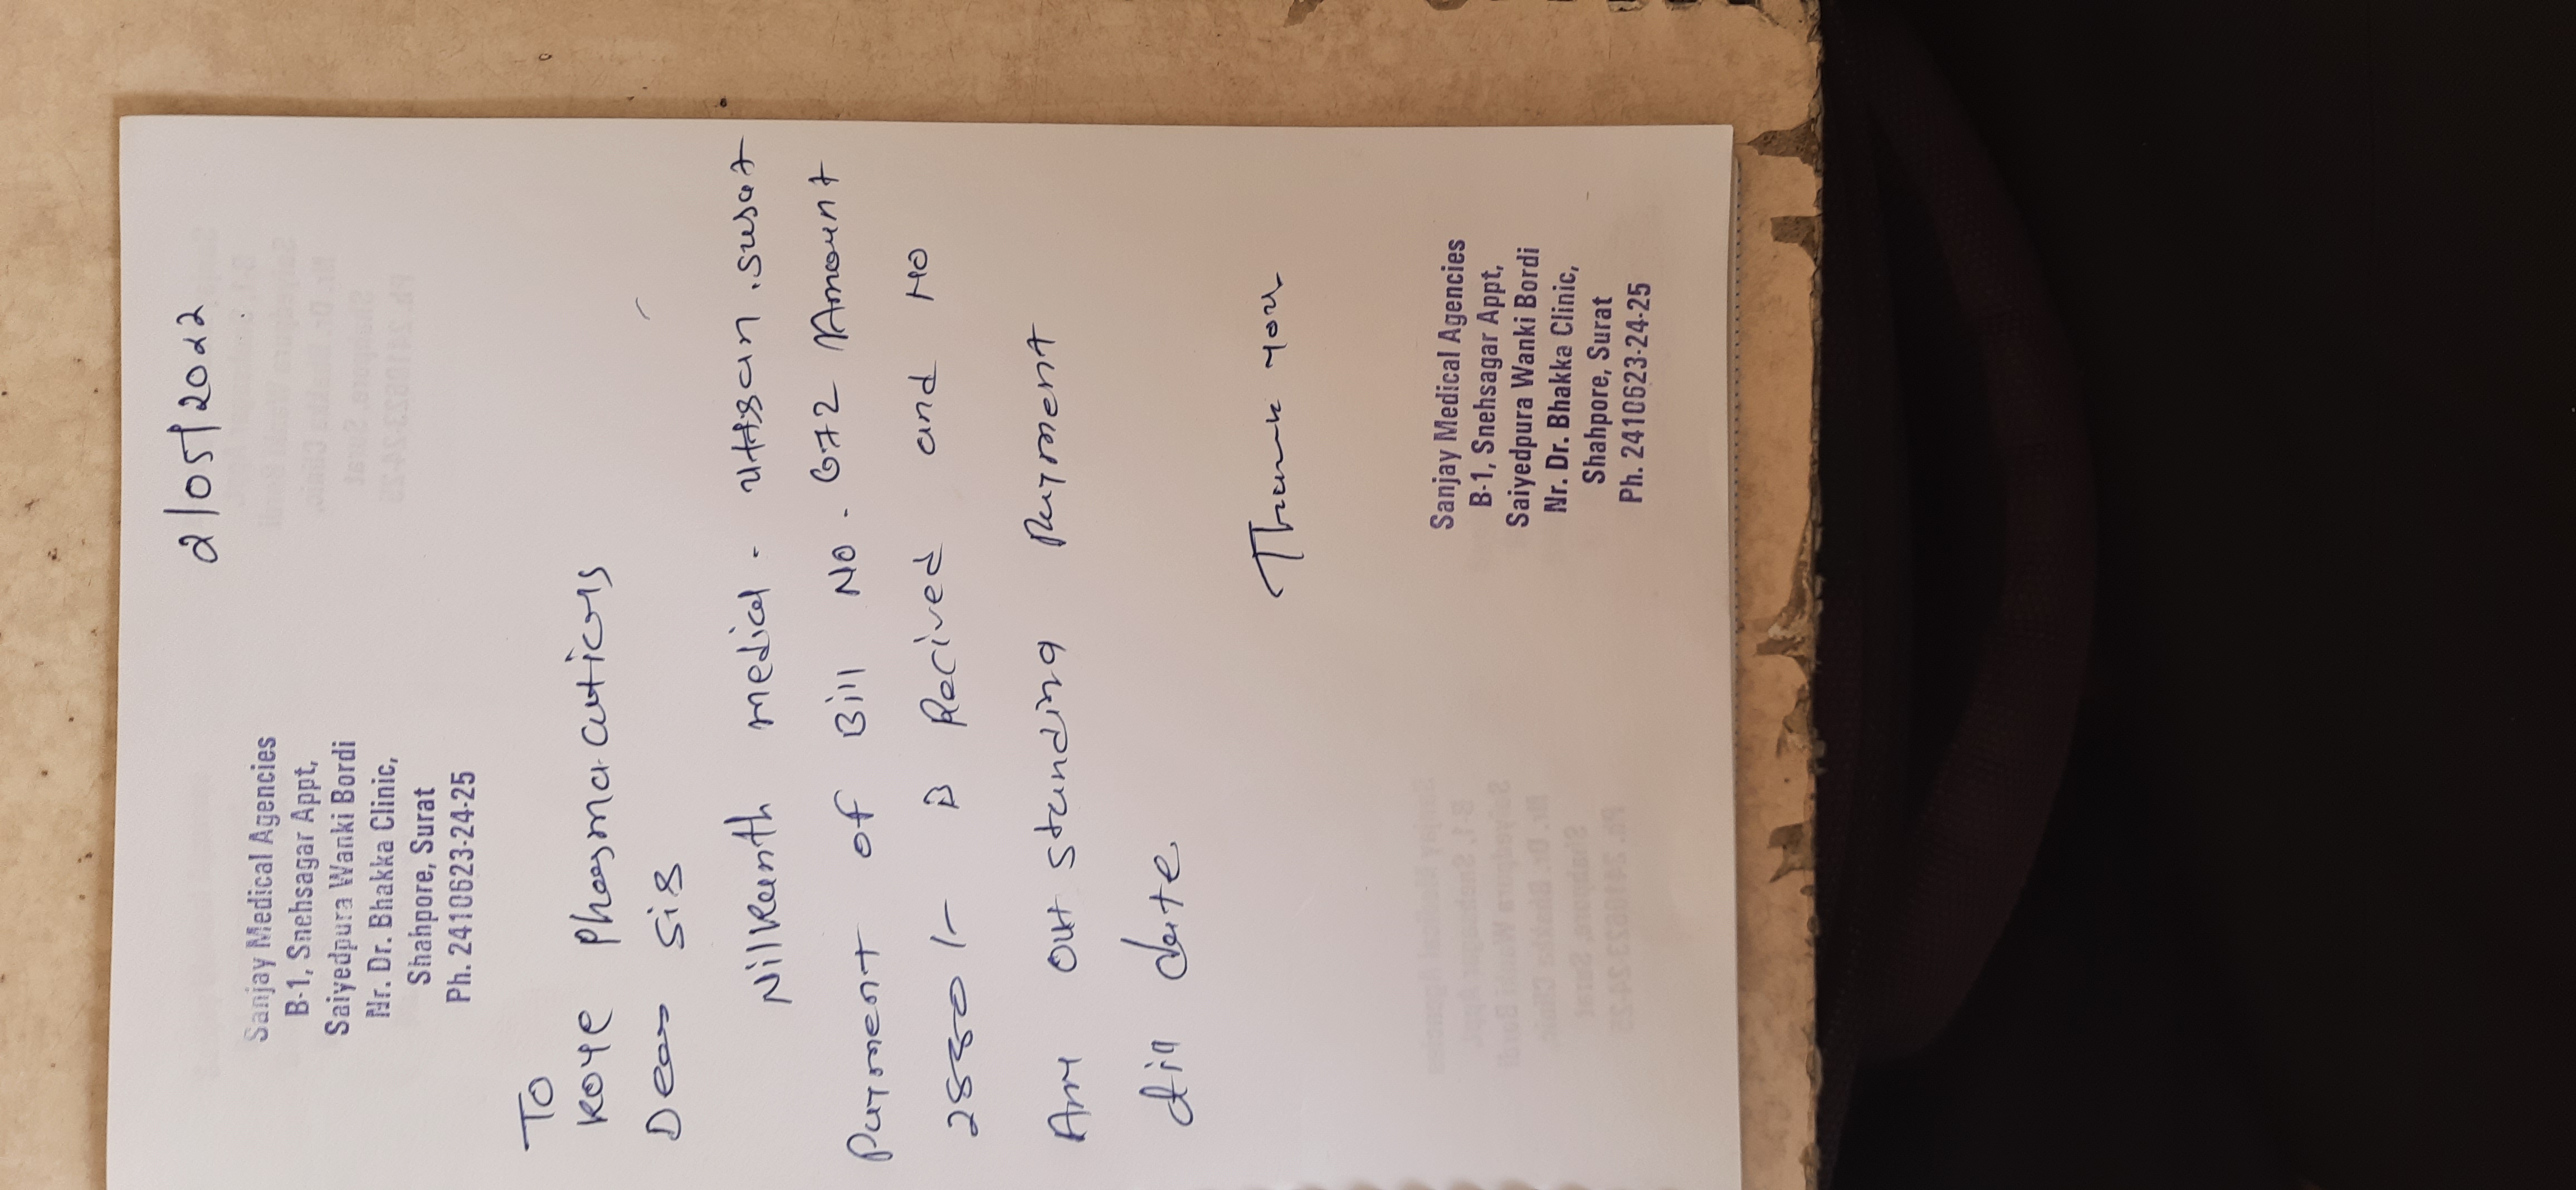 2/05/2022
Sanjay Medical Agencies
B-1, Snehsagar Appt,
Saiyedpura Wanki Bordi
Nr. Dr. Bhakka Clinic,
Shahpore, Surat
Ph. 2410623-24-25
To
Koye Pharmacuticars
Dear Sir
Nilkanth medical - uttran .surat
Payment of Bill No. 672 Amount
/- B Recived and no
Any out standing Payment
till date
Thank you
Sanjay Medical Agencies
B-1, Snehsagar Appt,
Saiyedpura Wanki Bordi
Nr. Dr. Bhakka Clinic,
Shahpore, Surat
Ph. 2410623-24-25